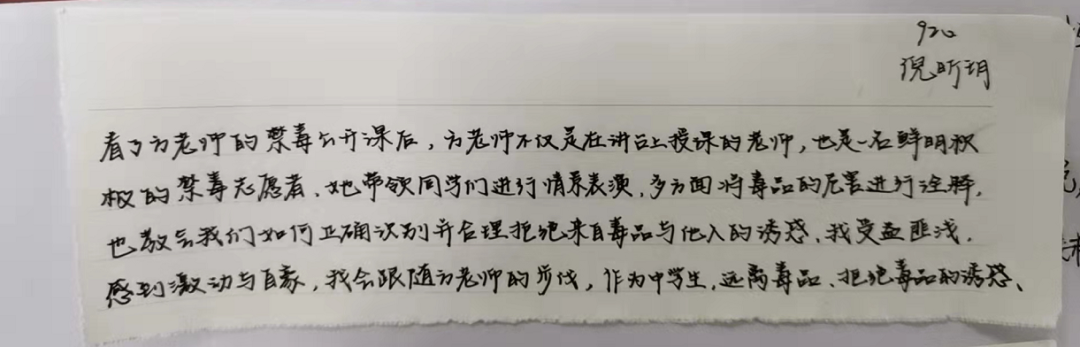 920
倪昕玥
看了方老师的禁毒公开课后，方老师不仅是在讲台上授课的老师，也是一名鲜明积
极的禁毒志愿者、她带领同学们进行情景表演，多方面将毒品的危害进行诠释，
也教会我们如何正确识别并合理拒绝来自毒品与他人的诱惑、我受益匪浅，
感到激动与自豪，我会跟随方老师的步伐，作为中学生，远离毒品、拒绝毒品的诱惑、